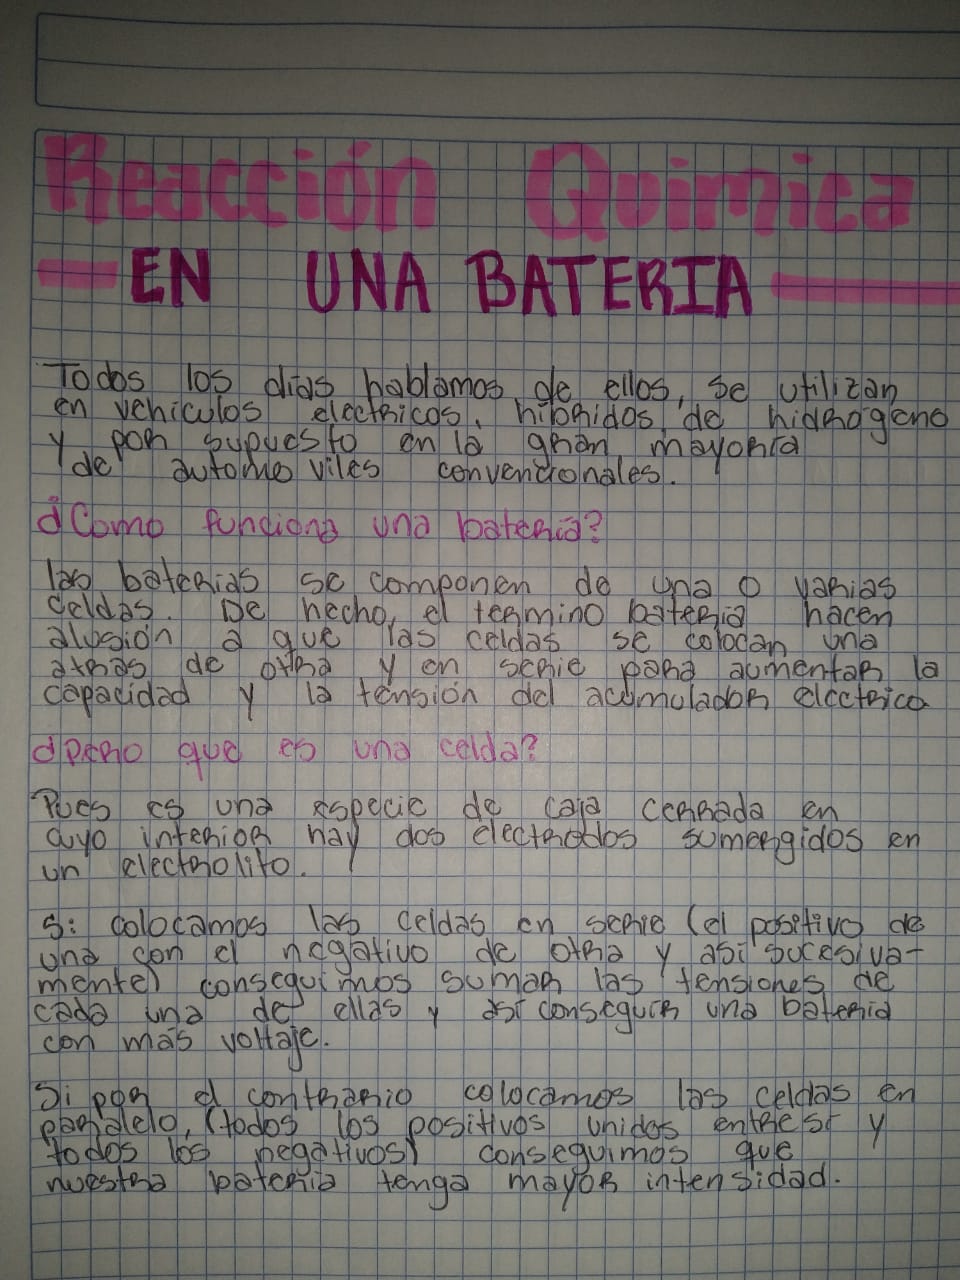 Reacción Quimica
EN UNA BATERIA
Todos los días hablamos de ellos, se utilizan
en vehiculos electricos, hibridos, de hidrogeno
y por supuesto en la gran mayoria
de automoviles convencionales.
¿Como funciona una bateria?
las baterias se componen de una o varias
celdas. De hecho, el termino bateria hacen
alusión a que las celdas se colocan una
atras de otra y en serie para aumentar la
capacidad y la tensión del acumulador electrico
¿Pero que es una celda?
Pues es una especie de caja cerrada en
cuyo interior hay dos electrodos sumergidos en
un electrolito.
Si colocamos las celdas en serie (el positivo de
una con el negativo de otra y asi sucesiva-
mente) conseguimos sumar las tensiones de
cada una de ellas y asi conseguir una bateria
con más voltaje.
Si por el contrario colocamos las celdas en
paralelo, (todos los positivos unidos entre si y
todos los negativos) conseguimos que
nuestra bateria tenga mayor intensidad.